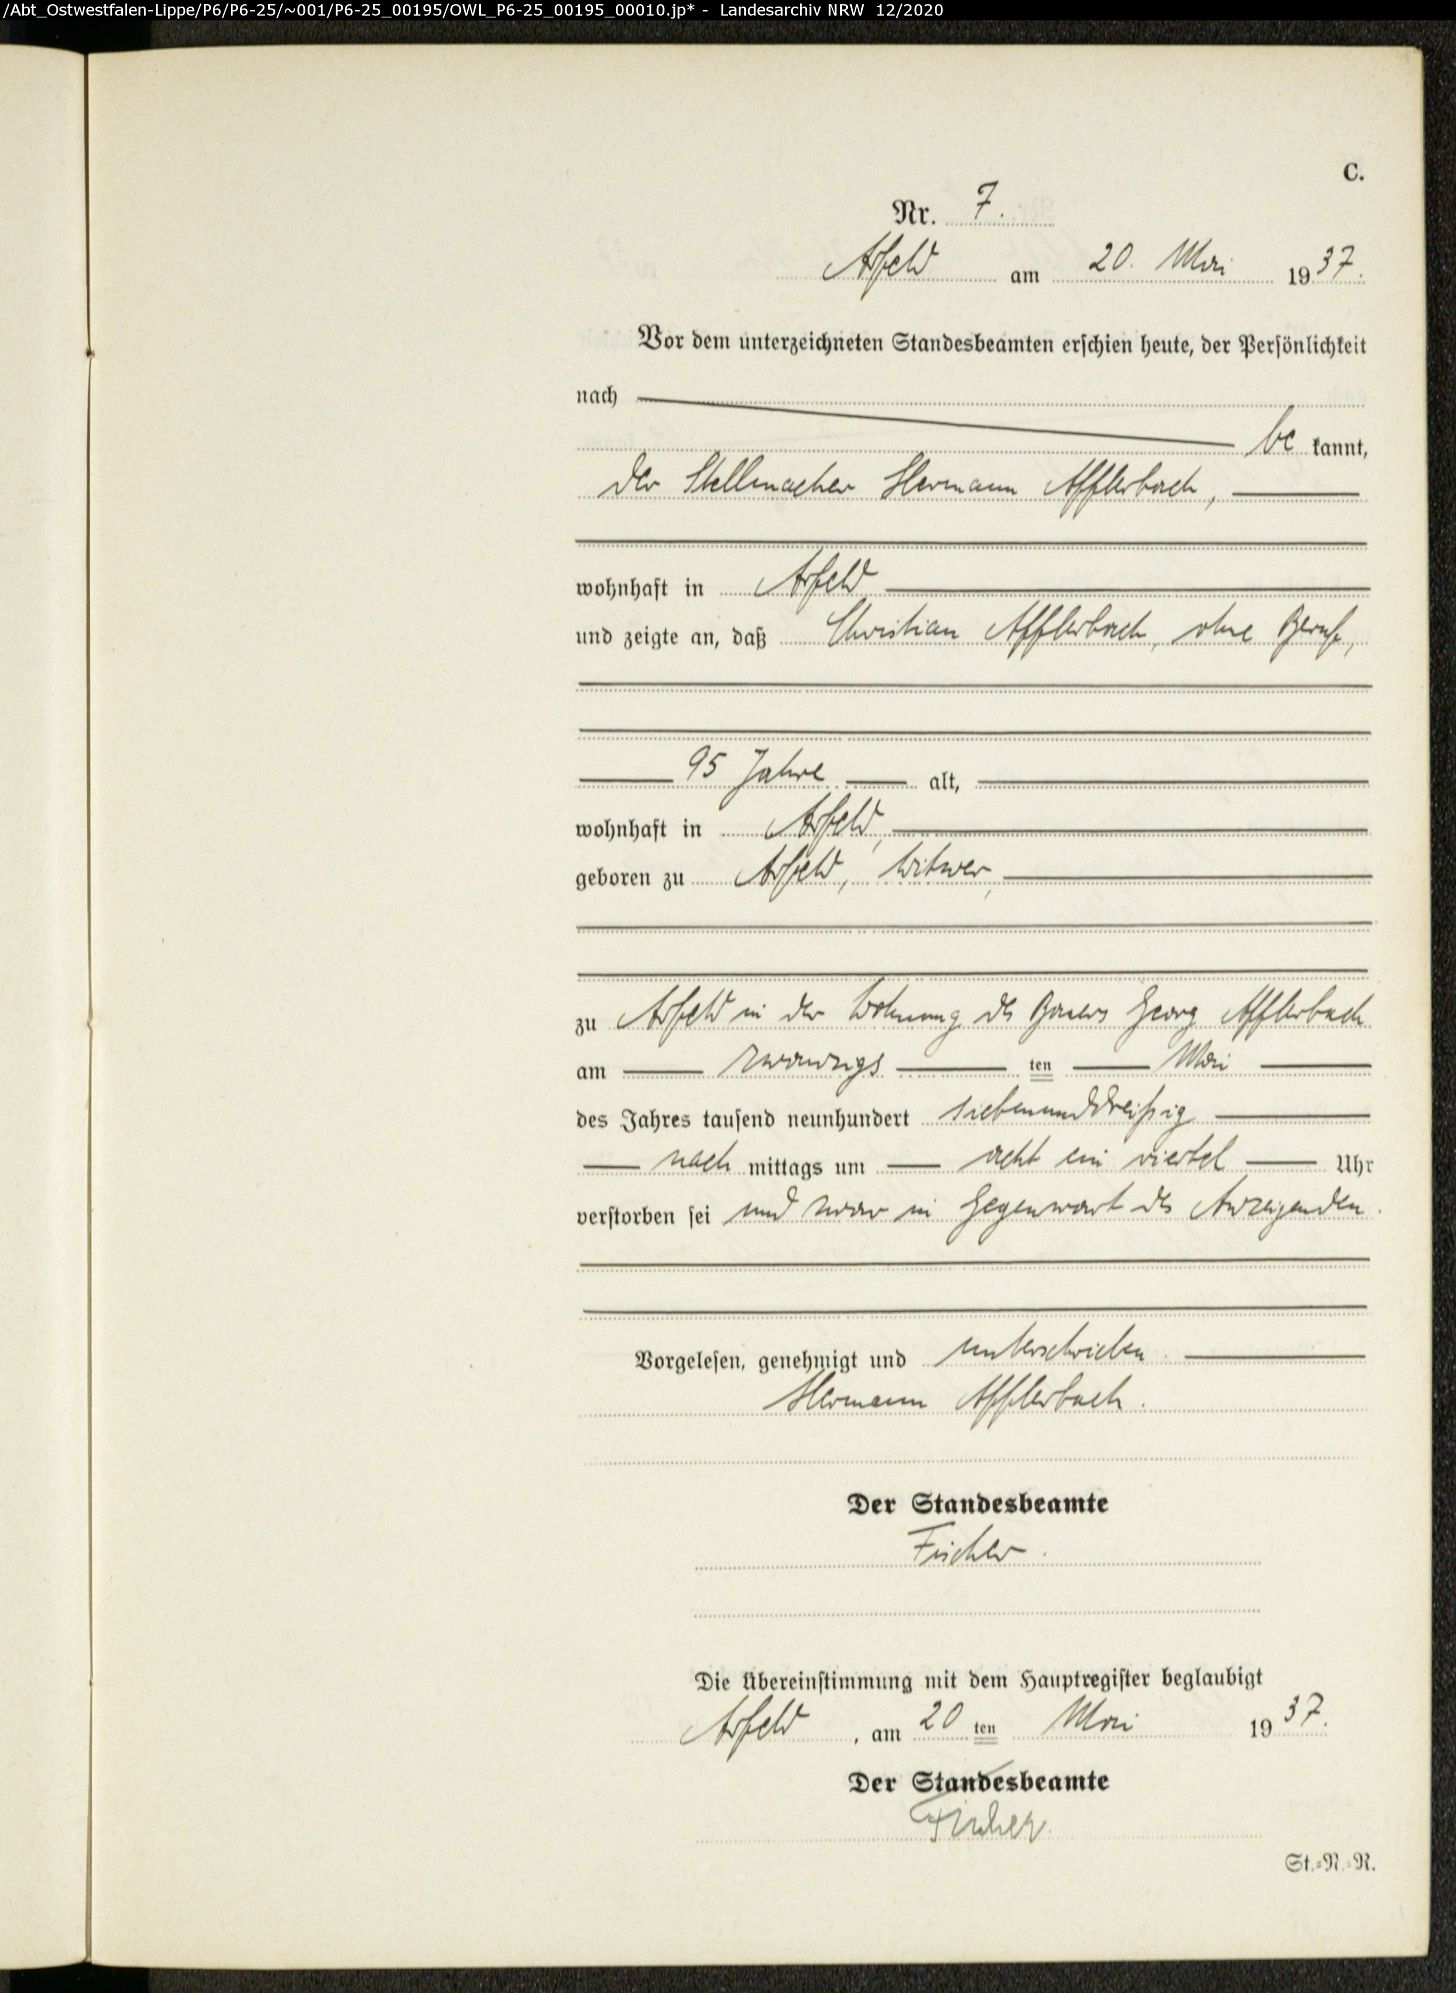 /Abt_Ostwestfalen-Lippe/P6/P6-25/~001/P6-25_00195/OWL_P6-25_00195_00010.jp* - Landesarchiv NRW 12/2020
C.
Nr. 7.
Arfeld am 20. Mai 1937.
Vor dem unterzeichneten Standesbeamten erschien heute, der Persönlichkeit
nach
be kannt,
der Stellmacher Hermann Afflerbach,
wohnhaft in Arfeld
und zeigte an, daß Christian Afflerbach, ohne Beruf,
95 Jahre alt,
wohnhaft in Arfeld,
geboren zu Arfeld, Witwer,
zu Arfeld in der Wohnung des Bauers Georg Afflerbach
am zwanzigs ten Mai
des Jahres tausend neunhundert siebenunddreißig
nach mittags um acht ein viertel Uhr
verstorben sei und zwar in Gegenwart des Anzeigenden.
Vorgelesen, genehmigt und unterschrieben.
Hermann Afflerbach.
Der Standesbeamte
Fischer.
Die Übereinstimmung mit dem Hauptregister beglaubigt
Arfeld, am 20 ten Mai 1937.
Der Standesbeamte
Fischer.
St.=N.=R.